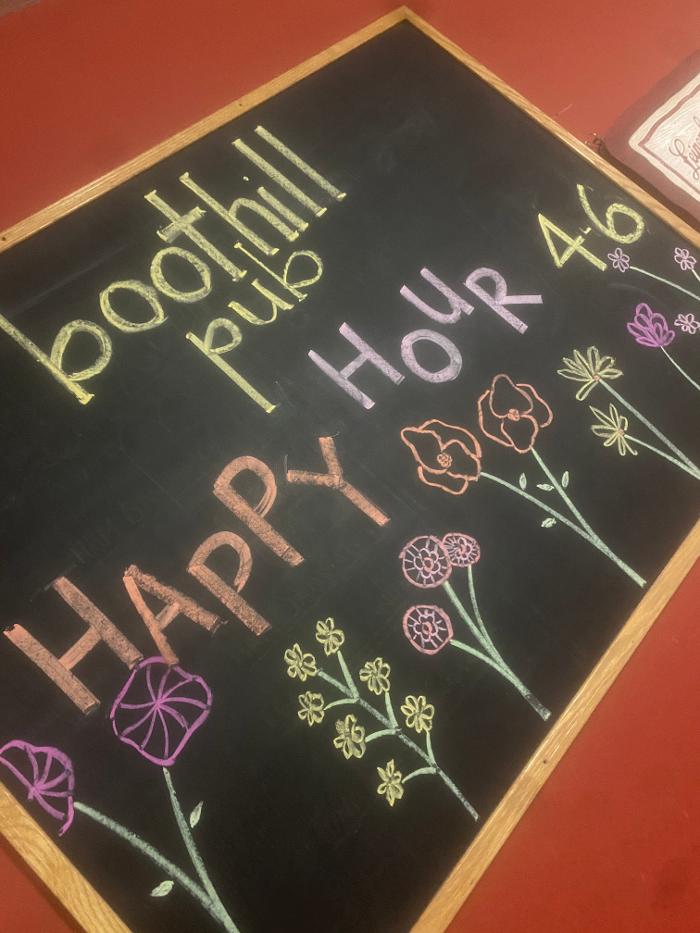 boothill
pub
HAPPY
HOUR
4-6